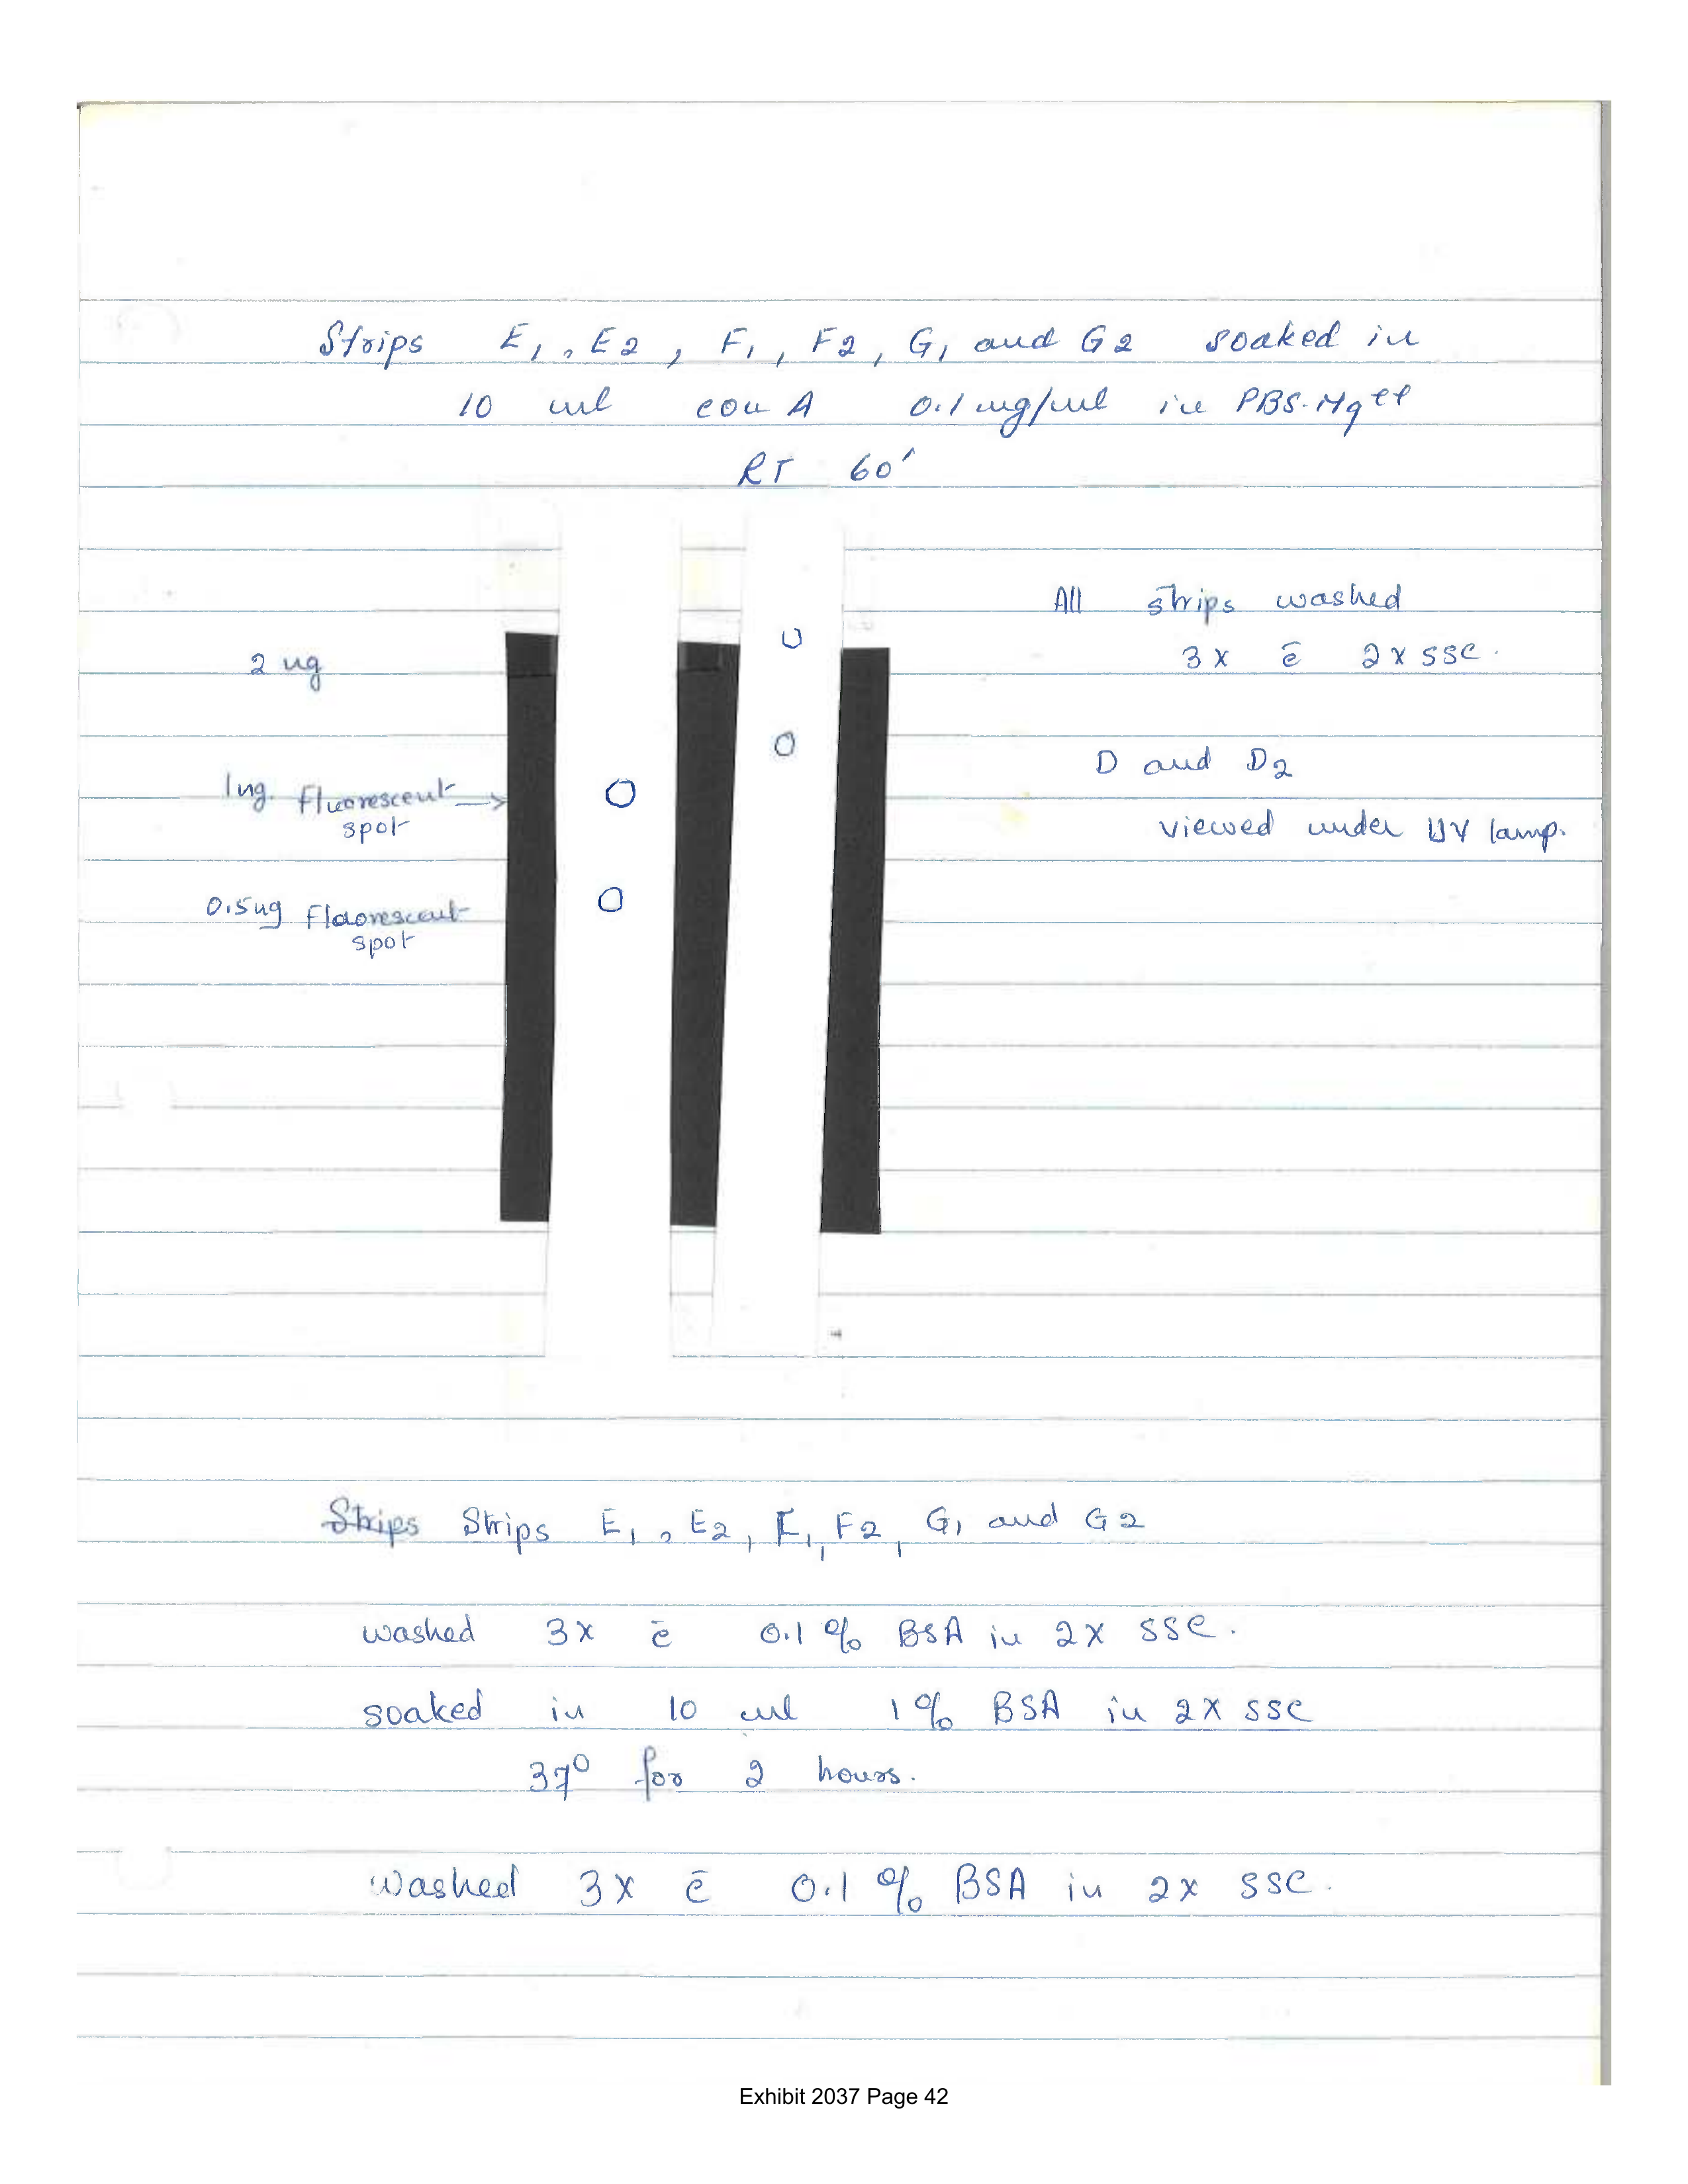 Strips E1, E2, F1, F2, G1 and G2 soaked in
10 ml con A 0.1 mg/ml in PBS-Mg++
RT 60'
All strips washed
3x c̄ 2x SSC.
2 ug
1ug. Fluorescent →
spot
0.5ug Fluorescent
spot
D and D2
viewed under UV lamp.
Strips Strips E1, E2, F1, F2, G1 and G2
washed 3x c̄ 0.1% BSA in 2x SSC.
soaked in 10 ml 1% BSA in 2x SSC
37° for 2 hours.
washed 3x c̄ 0.1% BSA in 2x SSC.
Exhibit 2037 Page 42